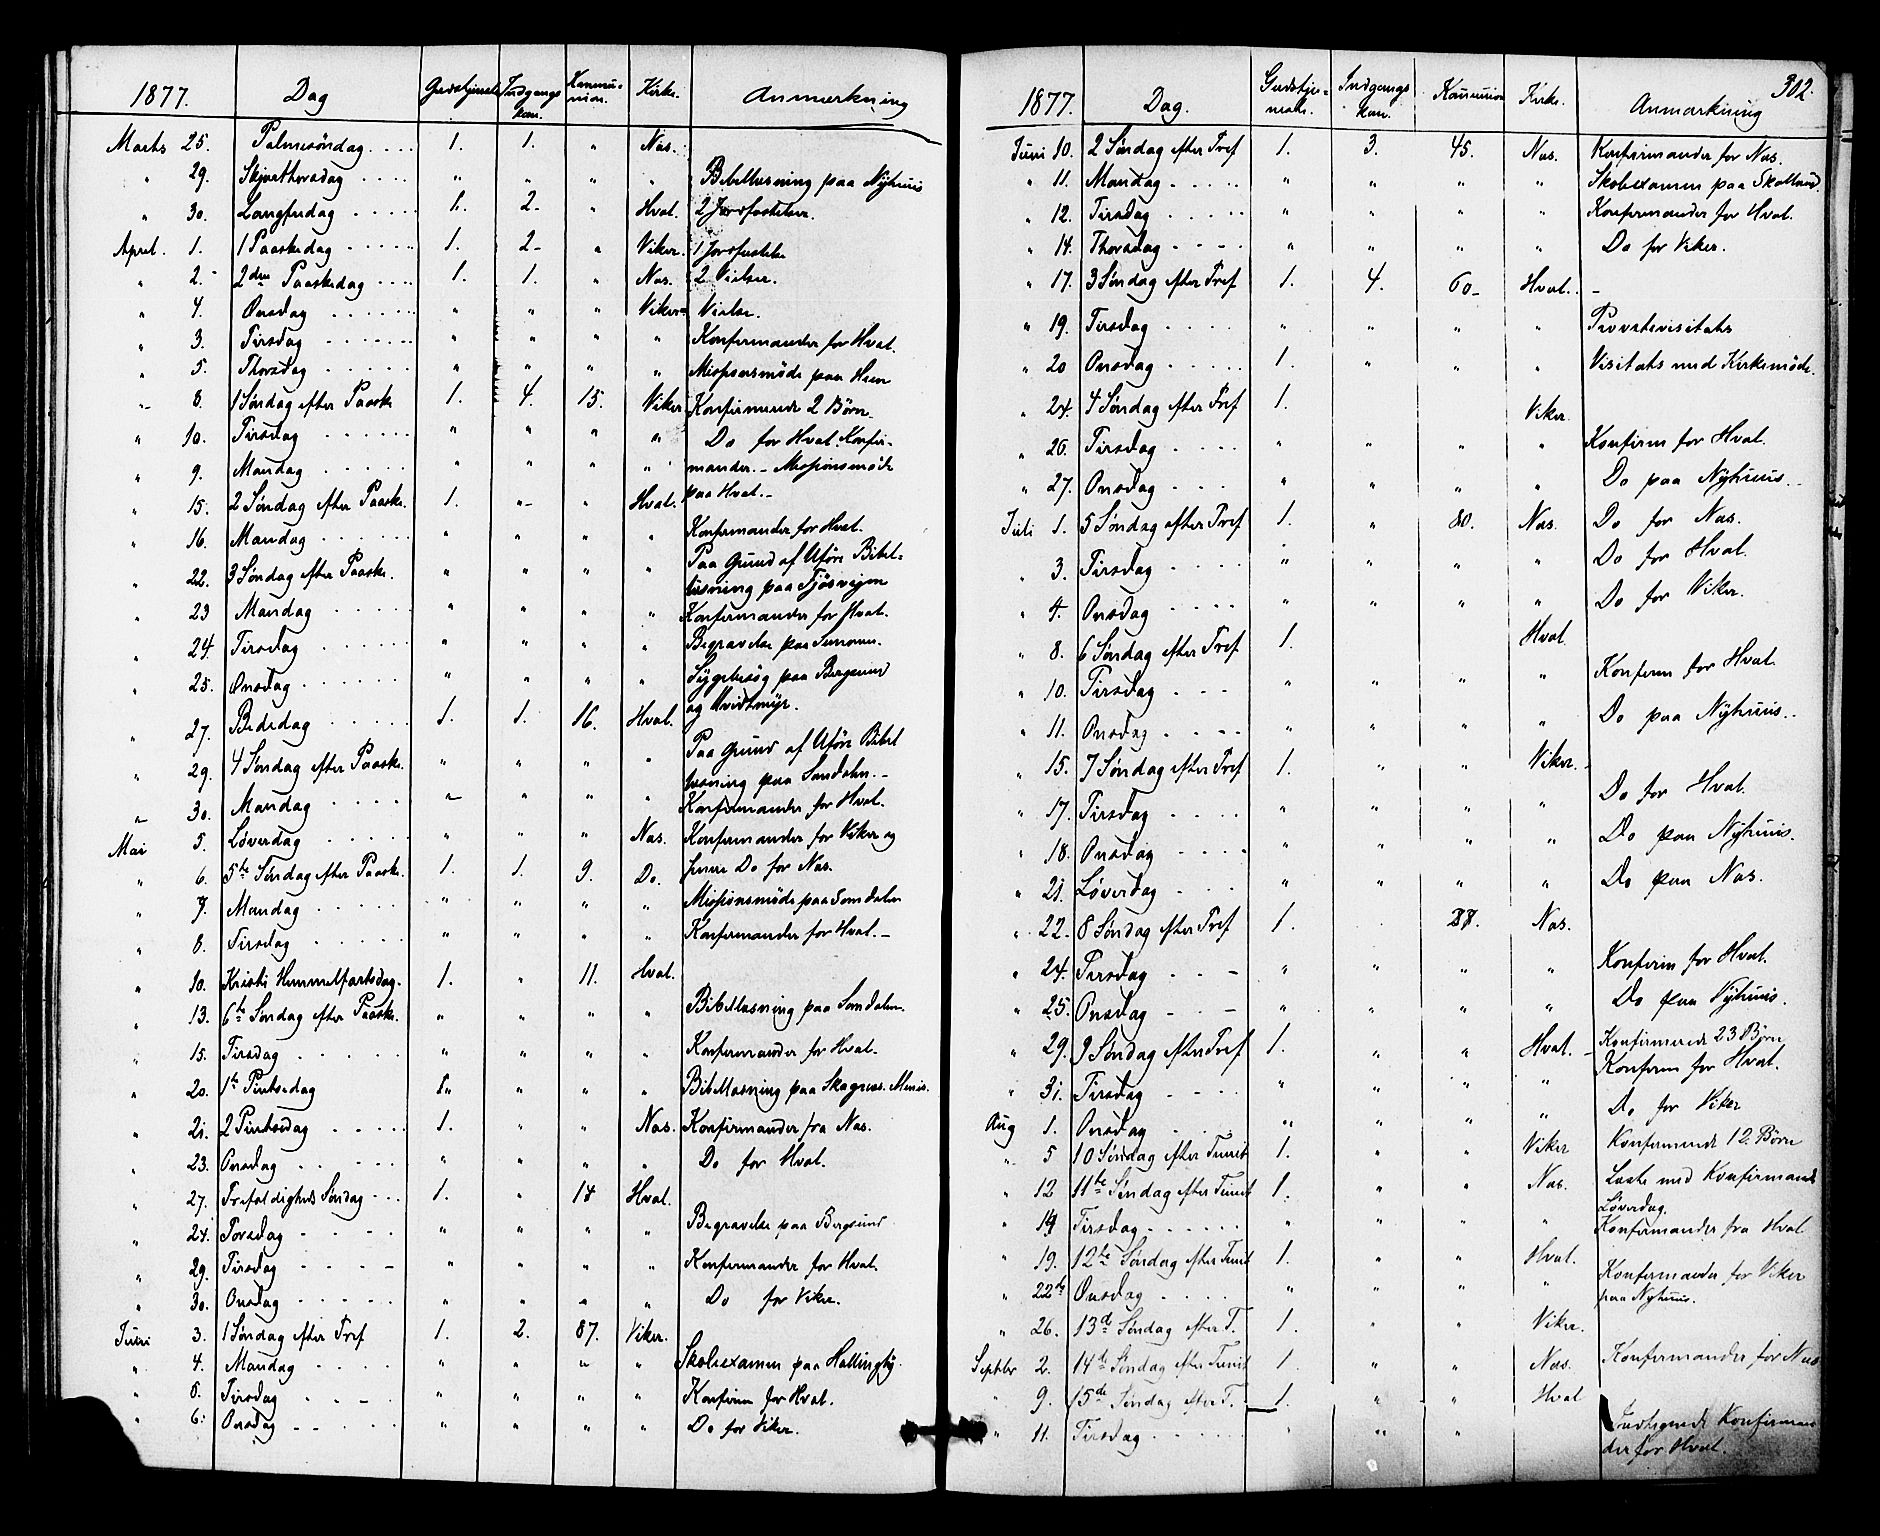 1877. Dag Gudstjeneste Indgangs kon. Kommunion. Kirke. Anmærkning
Marts 25. Palmesöndag . . . . 1. 1. " Næs.
" 29. Skjærthorsdag . . . . " " " " Bibellæsning paa Nÿhuus
" 30. Langfredag . . . . . 1. 2- " Hval. 2 Jordfæstelser.
April. 1. 1 Paaskedag . . . . . 1. 2- " Viker. 1 Jordfæstelse
" 2. 2den Paaskedag . . . 1. 1. " Næs. 2 Vielser.
" 4. Onsdag . . . . . . " " " Viker- Vielse.
" 3. Tirsdag . . . . . . " " " " Konfirmander for Hval.
" 5. Thorsdag . . . . . " " " " Missionsmöde paa Hæn
" 8. 1 Söndag efter Paaske 1. 4. 15. Viker Konfirmerede 2 Börn
" 10. Tirsdag . . . . . . " " " " Do for Hval. Konfir-
" 9. Mandag . . . . . . " " " " mander. - Missionsmöde
" 15. 2 Söndag efter Paaske. 1. "- " Hval. paa Hval. -
" 16. Mandag . . . . . . " " " " Konfirmander for Hval.
" 22. 3 Söndag efter Paaske. " " " " Paa Grund af Uföre Bibel-
læsning paa Tjösvejen
" 23 Mandag . . . . . " " " " Konfirmander for Hval.
" 24. Tirsdag . . . . . " " " " Begravelse paa
" 25. Onsdag . . . . . . " " " " Sygebesög paa Bergsund
og Hvidtmyr.
" 27. Bededag . . . . . 1. 1. 16. Hval.
" 29. 4 Söndag efter Paaske. " " " " Paa Grund af Uföre Bibel
læsning paa Somdalen. -
" 30. Mandag . . . . . " " " " Konfirmander for Hval.
Mai 5. Löverdag . . . . . " " " Næs. Konfirmander for Viker og
" 6. 5te Söndag efter Paaske. 1. 1. 9. Do. Do for Næs.
" 7. Mandag . . . . . " " " " Missionsmöde paa Somdalen
" 8. Tirsdag . . . . . " " " " Konfirmander for Hval. -
" 10. Kristi Himmelfartsdag. 1. " 11. Hval.
" 13. 6te Söndag efter Paaske. " " " " Bibellæsning paa Somdalen
" 15. Tirsdag . . . . . " " " " Konfirmander for Hval.
" 20. 1te Pintsedag " " " Bibellæsning paa
" 21. 2 Pintsedag . . . . . 1. " " Næs. Konfirmander fra Næs.
" 23. Onsdag . . . . . " " " " Do for Hval.
" 27. Trefoldigheds Söndag . . . 1. " 14 Hval.
" 24. Torsdag . . . . . " " " " Begravelse paa Bergsund
" 29. Tirsdag . . . . . " " " " Konfirmander for Hval.
" 30. Onsdag . . . . . " " " " Do for Viker.
Juni 3. 1 Söndag efter Tref 1. 2. 87. Viker.
" 4. Mandag . . . . . " " " " Skoleexamen paa Hallingby
" 5. Tirsdag . . . . " " " " Konfirm for Hval.
" 6. Onsdag . . . . . " " " " Do for Viker.
302.
1877. Dag. Gudstjeneste. Indgangs kon. Kommunion Kirke. Anmærkning
Juni 10. 2 Söndag efter Tref 1. 3. 45. Næs. Konfirmander for Næs.
" 11. Mandag . . . . . " " " " Skoleexamen paa Skollerud
" 12. Tirsdag . . . . . " " " " Konfirmander for Hval.
" 14. Thorsdag . . . . " " " " Do for Viker.
" 17. 3 Söndag efter Tref 1. 4. 60- Hval. -
" 19. Tirsdag . . . . " " " " Provstevisitats
" 20 Onsdag . . . . 1. " " " Visitats med Kirkemöde.
" 24. 4 Söndag efter Tref 1. Viker.
" 26. Tirsdag . . . . " " " " Konfirm for Hval.
" 27. Onsdag . . . " " " " Do paa Nÿhuus.
Juli 1. 5 Söndag efter Tref 1. " 80. Næs. Do for Næs.
" 3. Tirsdag . . . . " " " " Do for Hval.
" 4. Onsdag . . . . " " " " Do for Viker.
" 8. 6 Söndag efter Tref 1. Hval.
" 10. Tirsdag . . . " " " " Konfirm for Hval.
" 11. Onsdag . . . . " " " " Do paa Nÿhuus.
" 15. 7 Söndag efter Tref 1. " " Viker.
" 17. Tirsdag . . . . " " " " Do for Hval.
" 18. Onsdag . . . . " " " " Do paa Nÿhuus.
" 21. Löverdag . . . " " " " Do paa Næs.
" 22. 8 Söndag efter Tref 1. 28. Næs.
" 24. Tirsdag . . - " " " " Konfirm for Hval.
" 25. Onsdag . . - " " " " Do paa Nÿhuus.
" 29. 9 Söndag efter Tref 1. " " Hval. - Konfirmerede 23 Börn
" 31. Tirsdag . . . . " " " " Konfirm for Hval.
Aug 1. Onsdag . . . . " " " " Do for Viker
" 5 10 Söndag efter Trinit 1. " " Viker Konfirmerede 12. Börn
" 12 11te Söndag efter Trinit 1. " " Næs. Læste med Konfirmand
Löverdag.
" 14 Tirsdag . . . . . . " " " " Konfirmander fra Hval
" 19. 12te Söndag efter Trinit 1. " " Hval.
" 22de Onsdag . . . . . " " " " Konfirmander for Viker
paa Nyhuus.
" 26. 13de Söndag efter T. 1. " " Viker.
Septbr 2. 14de Söndag efter Trinit 1. " " Næs. Konfirmander for Næs
" 9. 15de Söndag efter T. 1. " " Hval
" 11. Tirsdag . . . . . . " " " Konfirman
der for Hval.